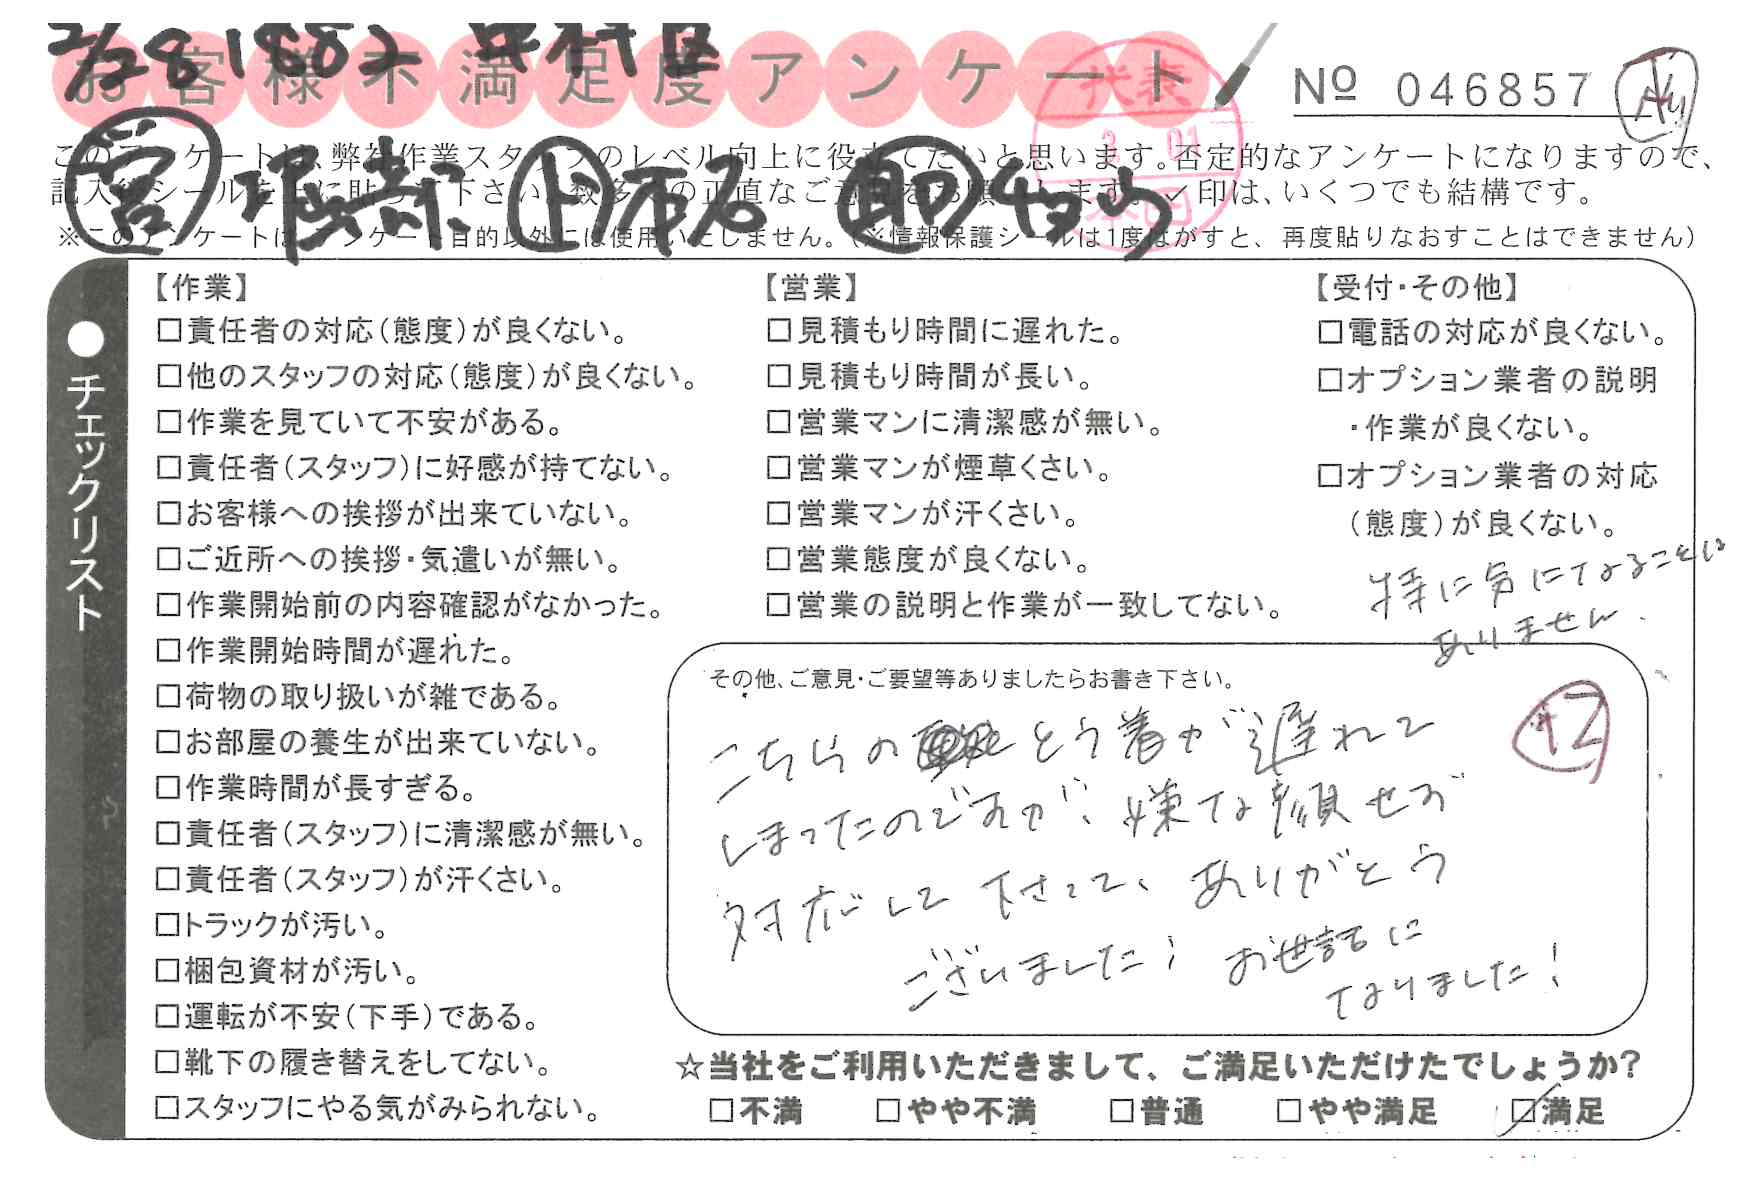 2/28 1882 中村区
お客様不満足度アンケート
No 046857
代表
3. 01
このアンケートは、弊社作業スタッフのレベル向上に役立てたいと思います。否定的なアンケートになりますので、
記入後シールを上に貼って下さい。数多くの正直なご意見をお願いします。✓印は、いくつでも結構です。
※このアンケートは、アンケート目的以外には使用いたしません。(※情報保護シールは1度はがすと、再度貼りなおすことはできません)
営 ト 助
●チェックリスト
【作業】
□責任者の対応(態度)が良くない。
□他のスタッフの対応(態度)が良くない。
□作業を見ていて不安がある。
□責任者(スタッフ)に好感が持てない。
□お客様への挨拶が出来ていない。
□ご近所への挨拶・気遣いが無い。
□作業開始前の内容確認がなかった。
□作業開始時間が遅れた。
□荷物の取り扱いが雑である。
□お部屋の養生が出来ていない。
□作業時間が長すぎる。
□責任者(スタッフ)に清潔感が無い。
□責任者(スタッフ)が汗くさい。
□トラックが汚い。
□梱包資材が汚い。
□運転が不安(下手)である。
□靴下の履き替えをしてない。
□スタッフにやる気がみられない。
【営業】
□見積もり時間に遅れた。
□見積もり時間が長い。
□営業マンに清潔感が無い。
□営業マンが煙草くさい。
□営業マンが汗くさい。
□営業態度が良くない。
□営業の説明と作業が一致してない。
【受付・その他】
□電話の対応が良くない。
□オプション業者の説明
・作業が良くない。
□オプション業者の対応
(態度)が良くない。
特に気になることは
ありません.
その他、ご意見・ご要望等ありましたらお書き下さい。
こちらの とう着が遅れて
しまったのですが、嫌な顔せず
対応して下さって、ありがとう
ございました! お世話に
なりました!
☆当社をご利用いただきまして、ご満足いただけたでしょうか?
□不満 □やや不満 □普通 □やや満足 ☑満足